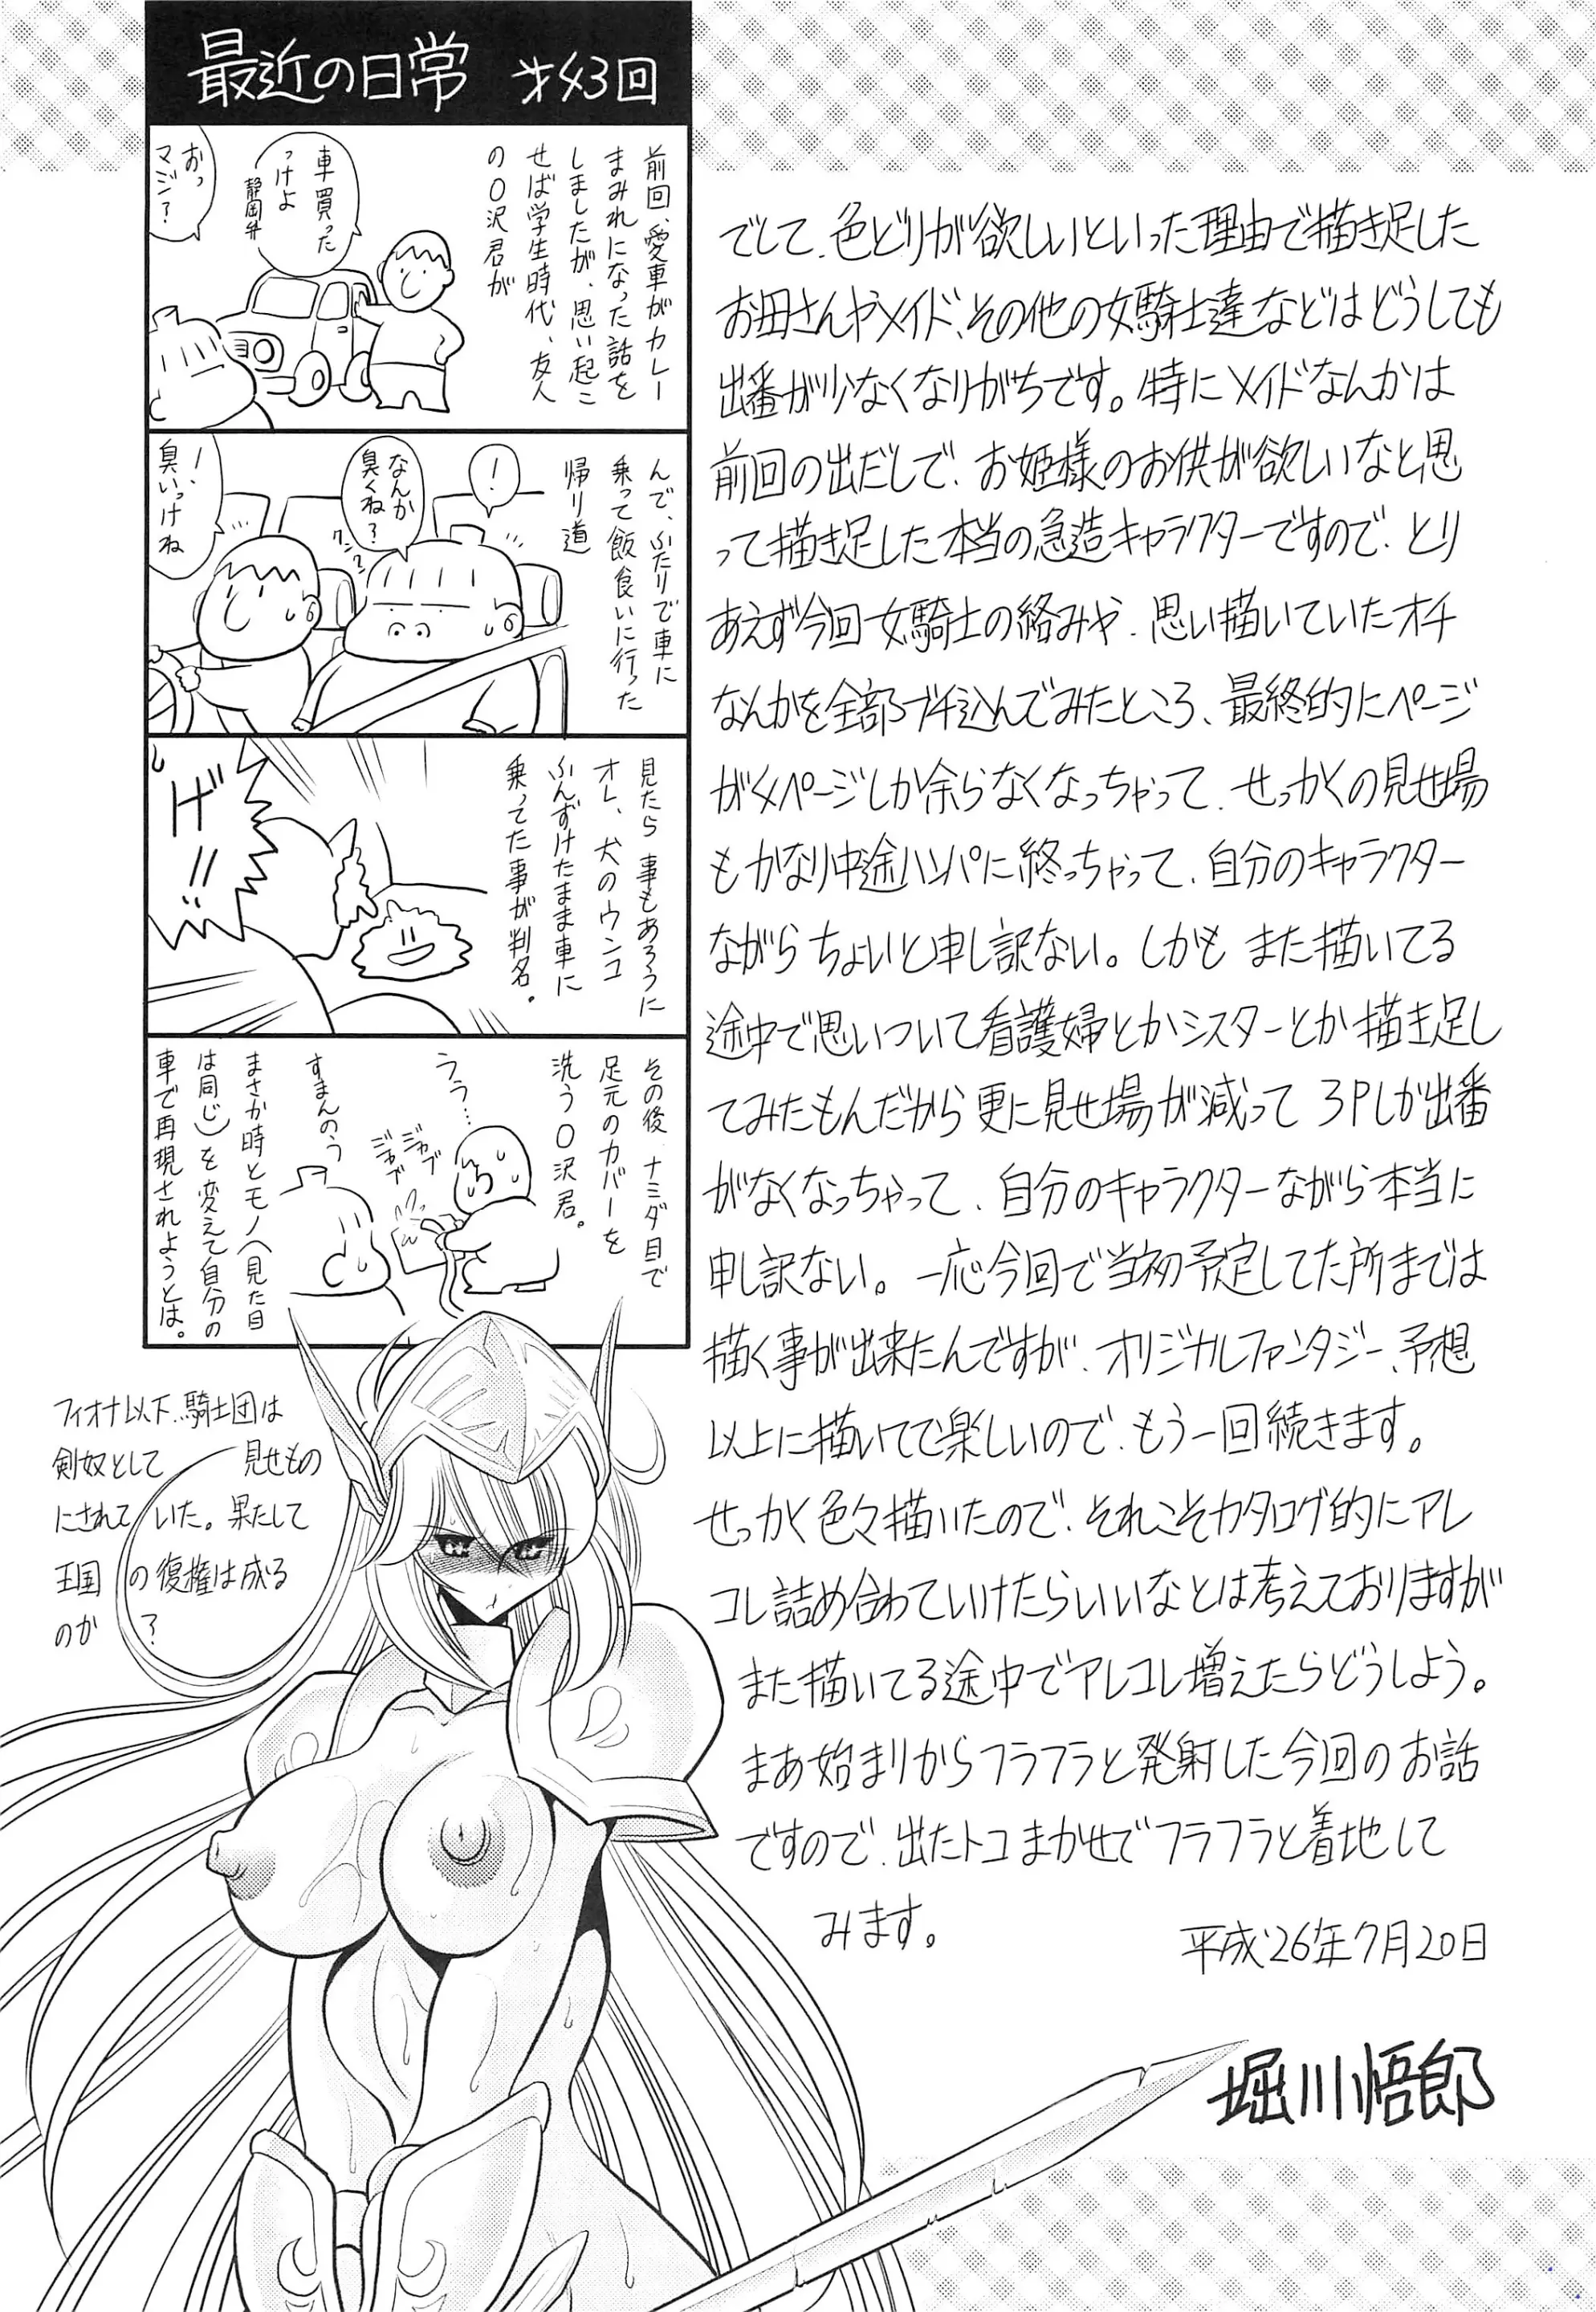 最近の日常 才43回
前回、愛車がカレー
まみれになった話を
しましたが、思い起こ
せば学生時代、友人
の〇沢君が
車買った
っけよ
静岡弁
おっ
マジ?
んで、ふたりで車に
乗って飯食いに行った
帰り道
!
なんか
臭くね?
クンクン
臭いっけね
見たら事もあろうに
オレ、犬のウンコ
ふんずけたまま車に
乗ってた事が判名。
げ!!
その後、ナミダ目で
足元のカバーを
洗う〇沢君。
うう…
ジャブ
ジャブ
すまんのう
まさか時とモノ(見た目
は同じ)を変えて自分の
車で再現されようとは。
でして、色どりが欲しいといった理由で描き足した
お母さんやメイド、その他の女騎士達などはどうしても
出番が少なくなりがちです。特にメイドなんかは
前回の出だしで、お姫様のお供が欲しいなと思
って描き足した本当の急造キャラクターですので、とり
あえず今回女騎士の絡みや、思い描いていたオチ
なんかを全部ブチ込んでみたところ、最終的にページ
が4ページしか余らなくなっちゃって、せっかくの見せ場
もかなり中途ハンパに終っちゃって、自分のキャラクター
ながらちょいと申し訳ない。しかも また描いてる
途中で思いついて看護婦とかシスターとか描き足し
てみたもんだから更に見せ場が減って 3Pしか出番
がなくなっちゃって、自分のキャラクターながら本当に
申し訳ない。一応今回で当初予定してた所までは
描く事が出来たんですが、オリジナルファンタジー、予想
以上に描いてて楽しいので、もう一回続きます。
せっかく色々描いたので、それこそカタログ的にアレ
コレ詰め合わせていけたらいいなとは考えておりますが
また描いてる途中でアレコレ増えたらどうしよう。
まあ始まりからフラフラと発射した今回のお話
ですので、出たトコまかせでフラフラと着地して
みます。
平成26年7月20日
堀川悟郎
フィオナ以下、騎士団は
剣奴として 見せもの
にされていた。果たして
王国の復権は成る
のか?